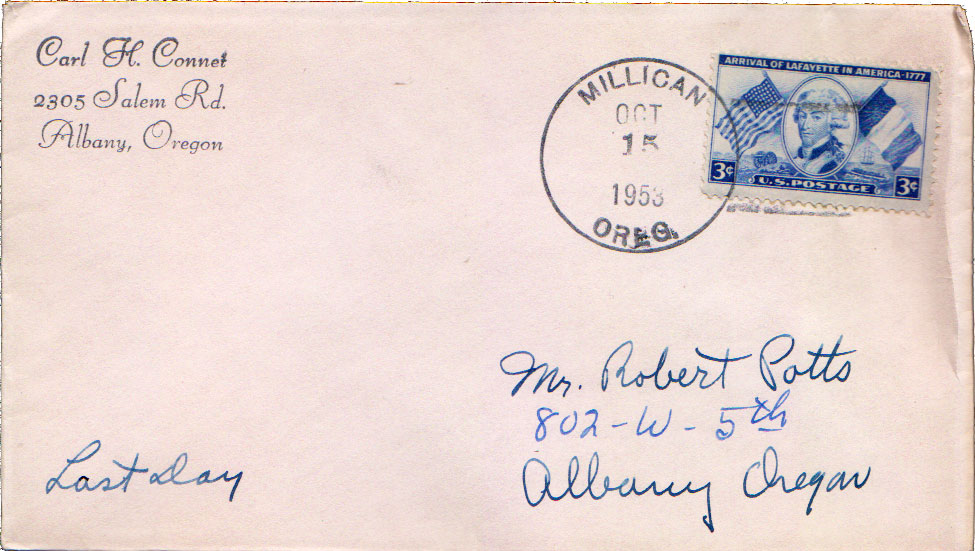 Carl H. Connet
2305 Salem Rd.
Albany, Oregon
MILLICAN
OCT
15
1953
OREG.
ARRIVAL OF LAFAYETTE IN AMERICA·1777
3¢ U.S. POSTAGE 3¢
Mr. Robert Potts
802-W-5th
Albany Oregon
Last Day